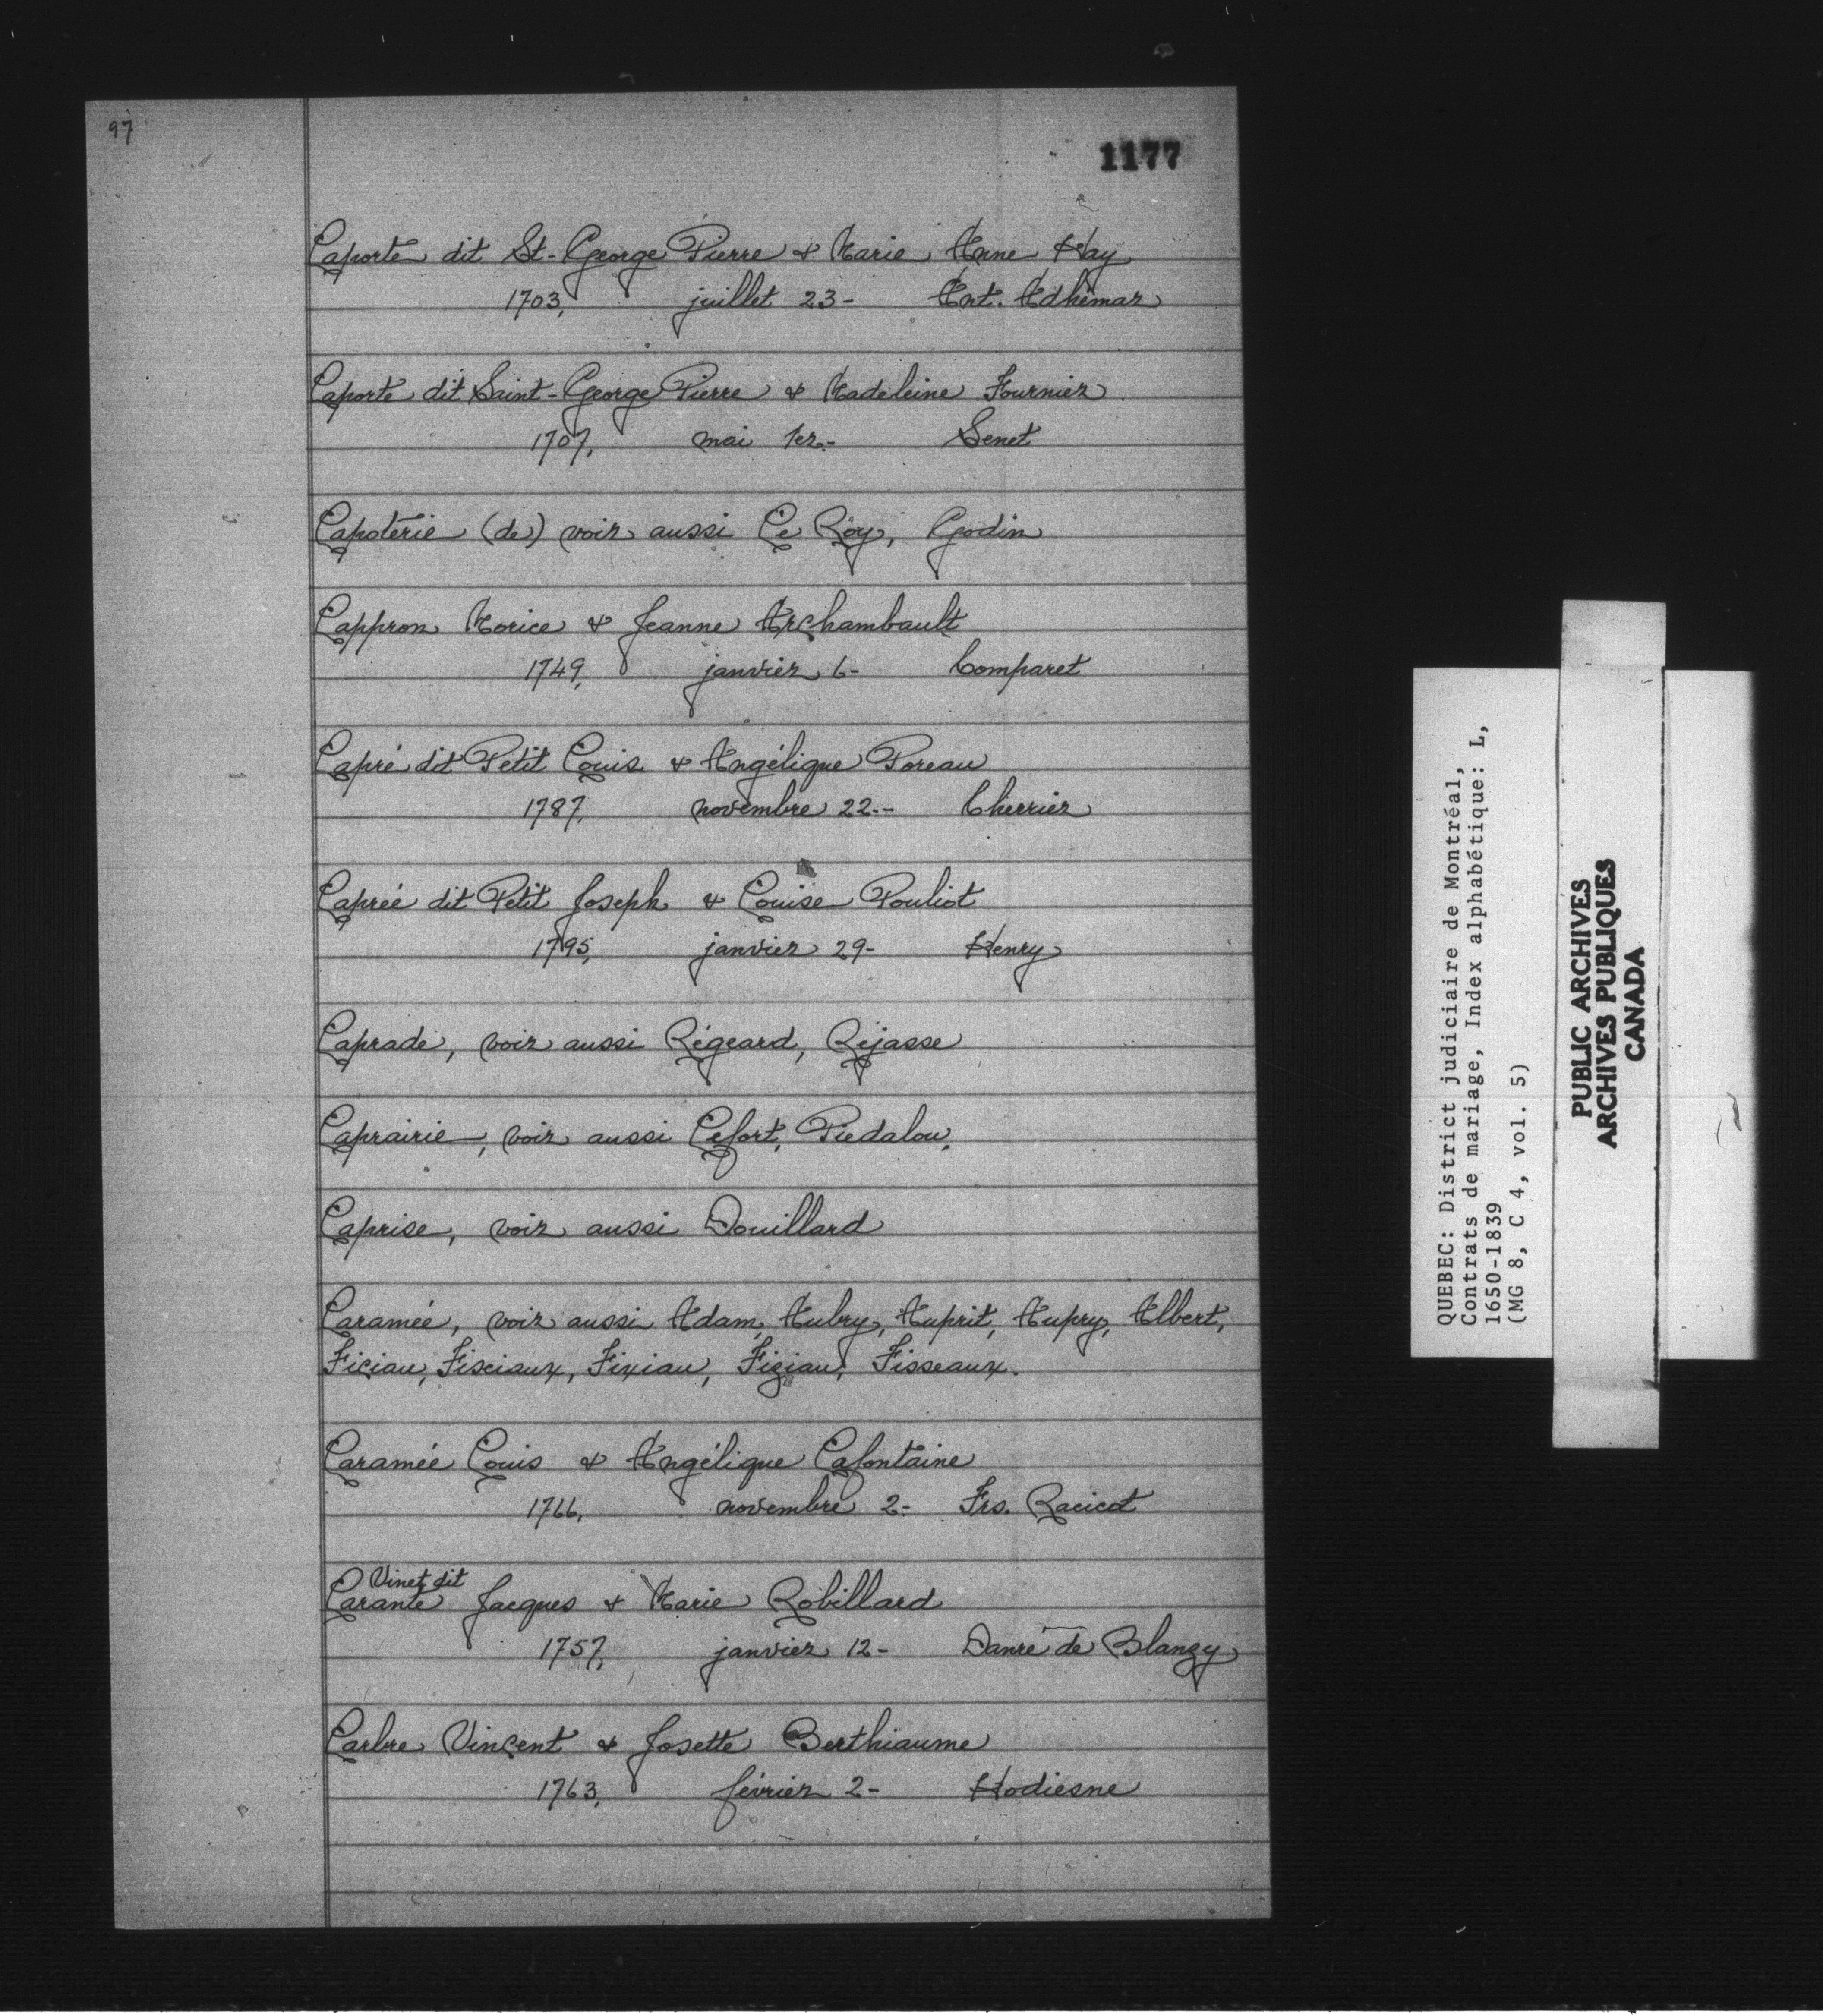 97
1177
Laporte dit St-George Pierre & Marie Anne Hay
1703, juillet 23- Ant. Adhémar
Laporte dit Saint-George Pierre & Madeleine Fournier
1707, mai 1er.- Senet
Lapoterie (de) voir aussi Le Roy, Godin
Lappron Morice & Jeanne Archambault
1749, janvier 6- Comparet
Lapré dit Petit Louis & Angélique Poreau
1787, novembre 22.- Cherrier
Laprée dit Petit Joseph & Louise Pouliot
1795, janvier 29- Henry
Laprade, voir aussi Régeard, Réjasse
Laprairie, voir aussi Lefort, Piedalou,
Laprise, voir aussi Douillard
Laramée, voir aussi Adam, Aubry, Auprit, Aupry, Albert,
Ficiau, Fisciaux, Fixiau, Fiziau, Fisseaux.
Laramée Louis & Angélique Lafontaine
1766, novembre 2- Frs. Racicot
Vinet dit
Larante Jacques & Marie Robillard
1757, janvier 12- Danré de Blanzy
Larbre Vincent & Josette Berthiaume
1763, février 2- Hodiesne
QUEBEC: District judiciaire de Montréal,
Contrats de mariage, Index alphabétique: L,
1650-1839
(MG 8, C 4, vol. 5)
PUBLIC ARCHIVES
ARCHIVES PUBLIQUES
CANADA